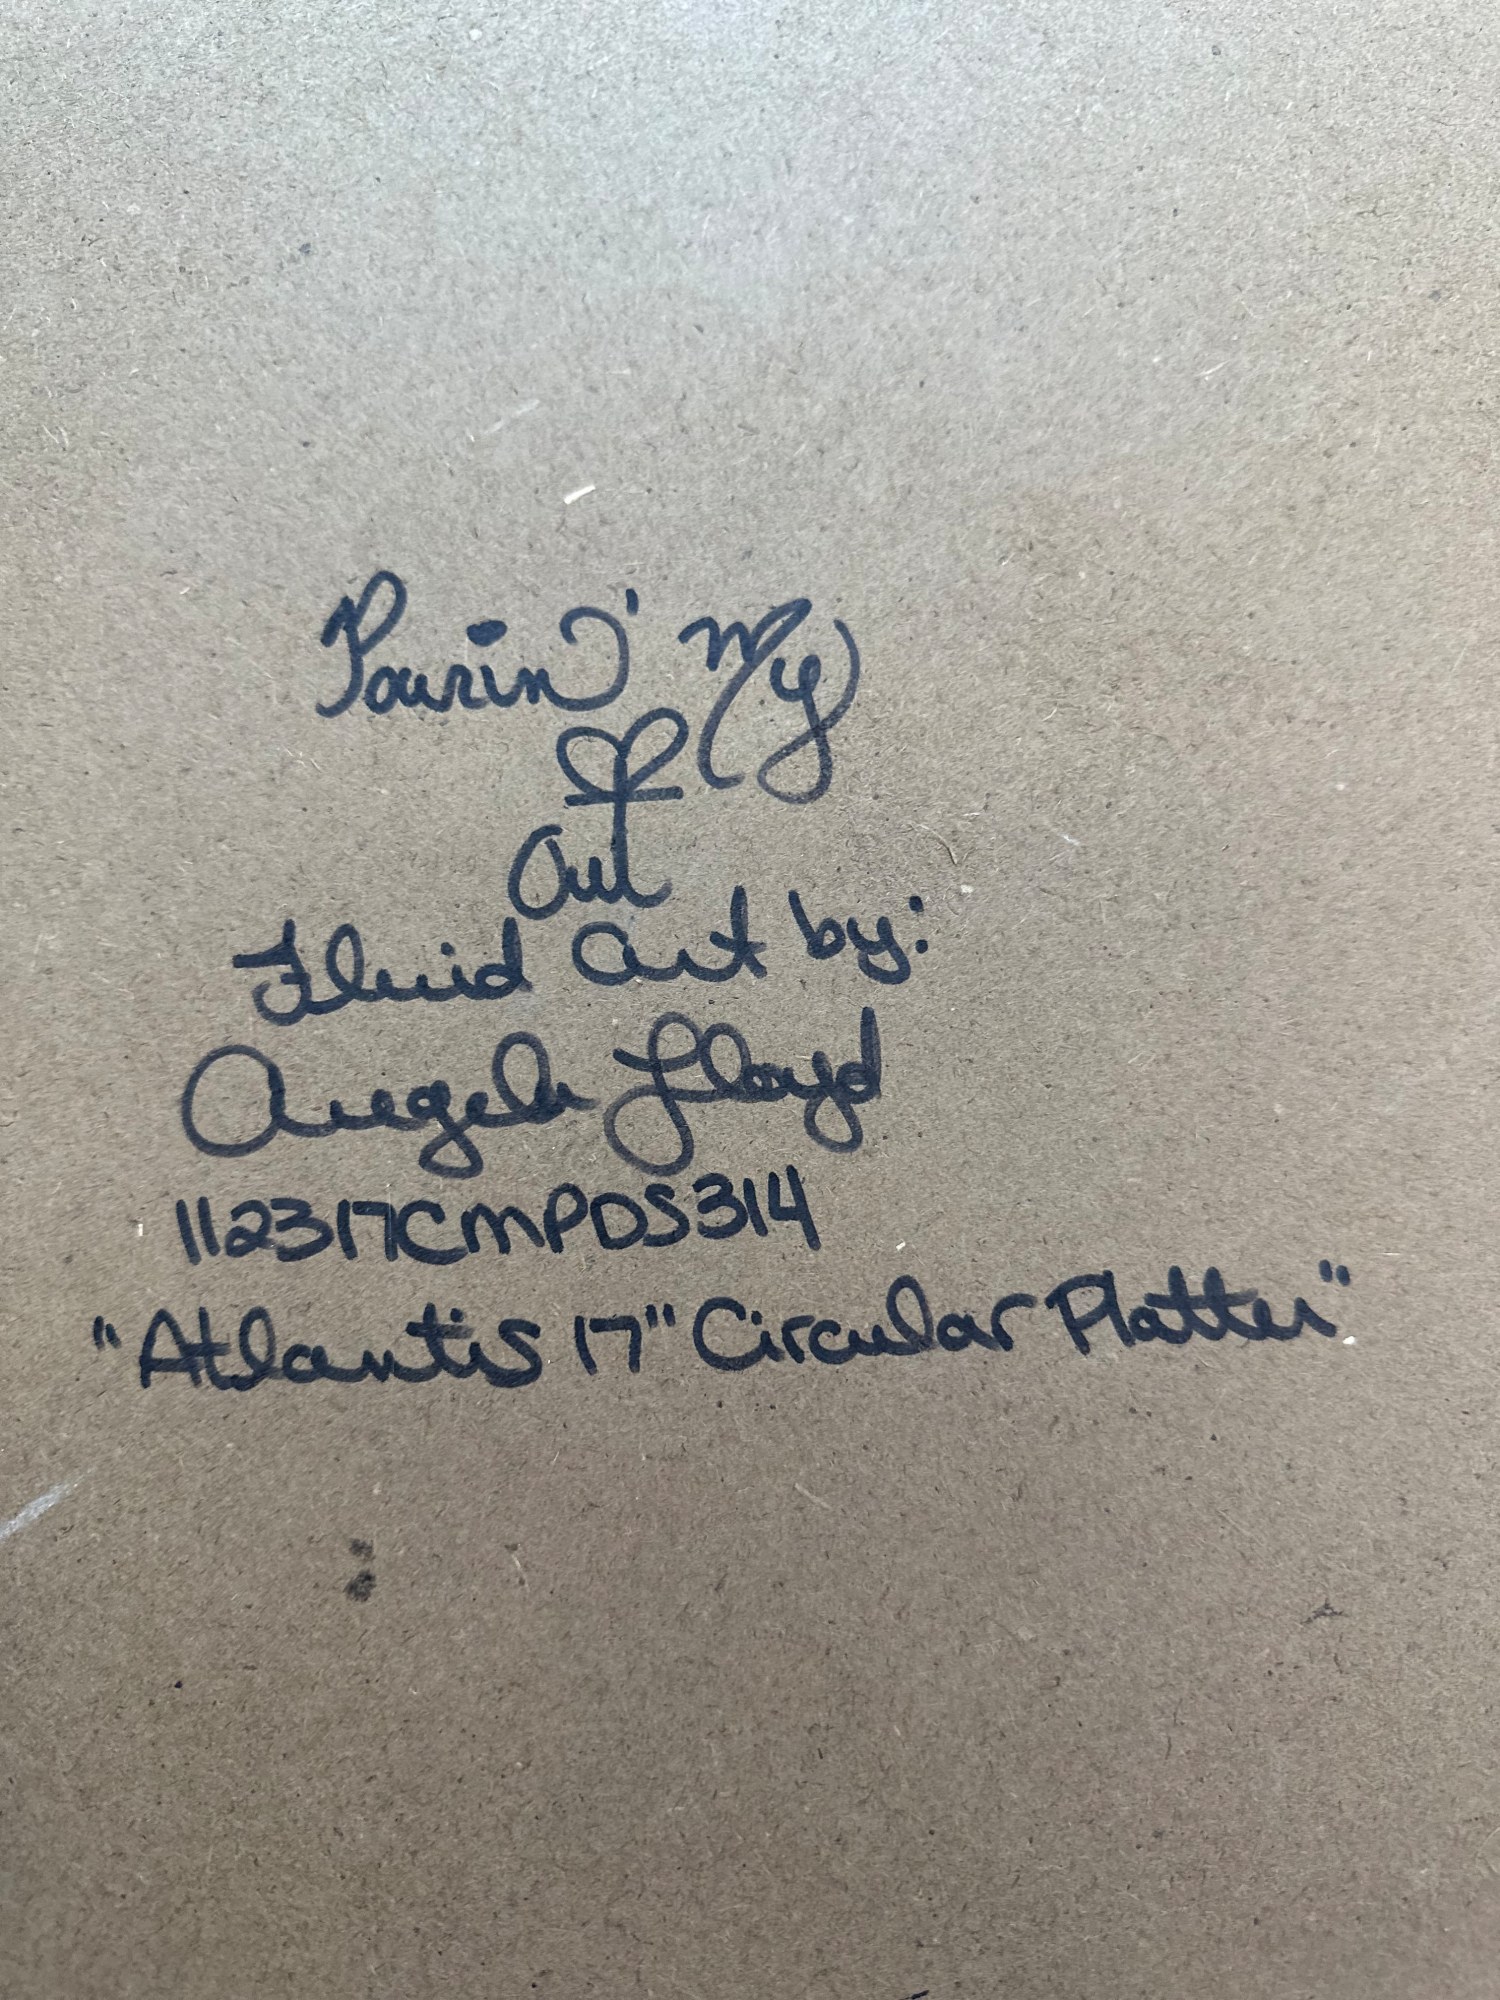 Pourin' My
Out
Fluid Art by:
Angela Lloyd
112317CMPDS314
"Atlantis 17" Circular Platter"